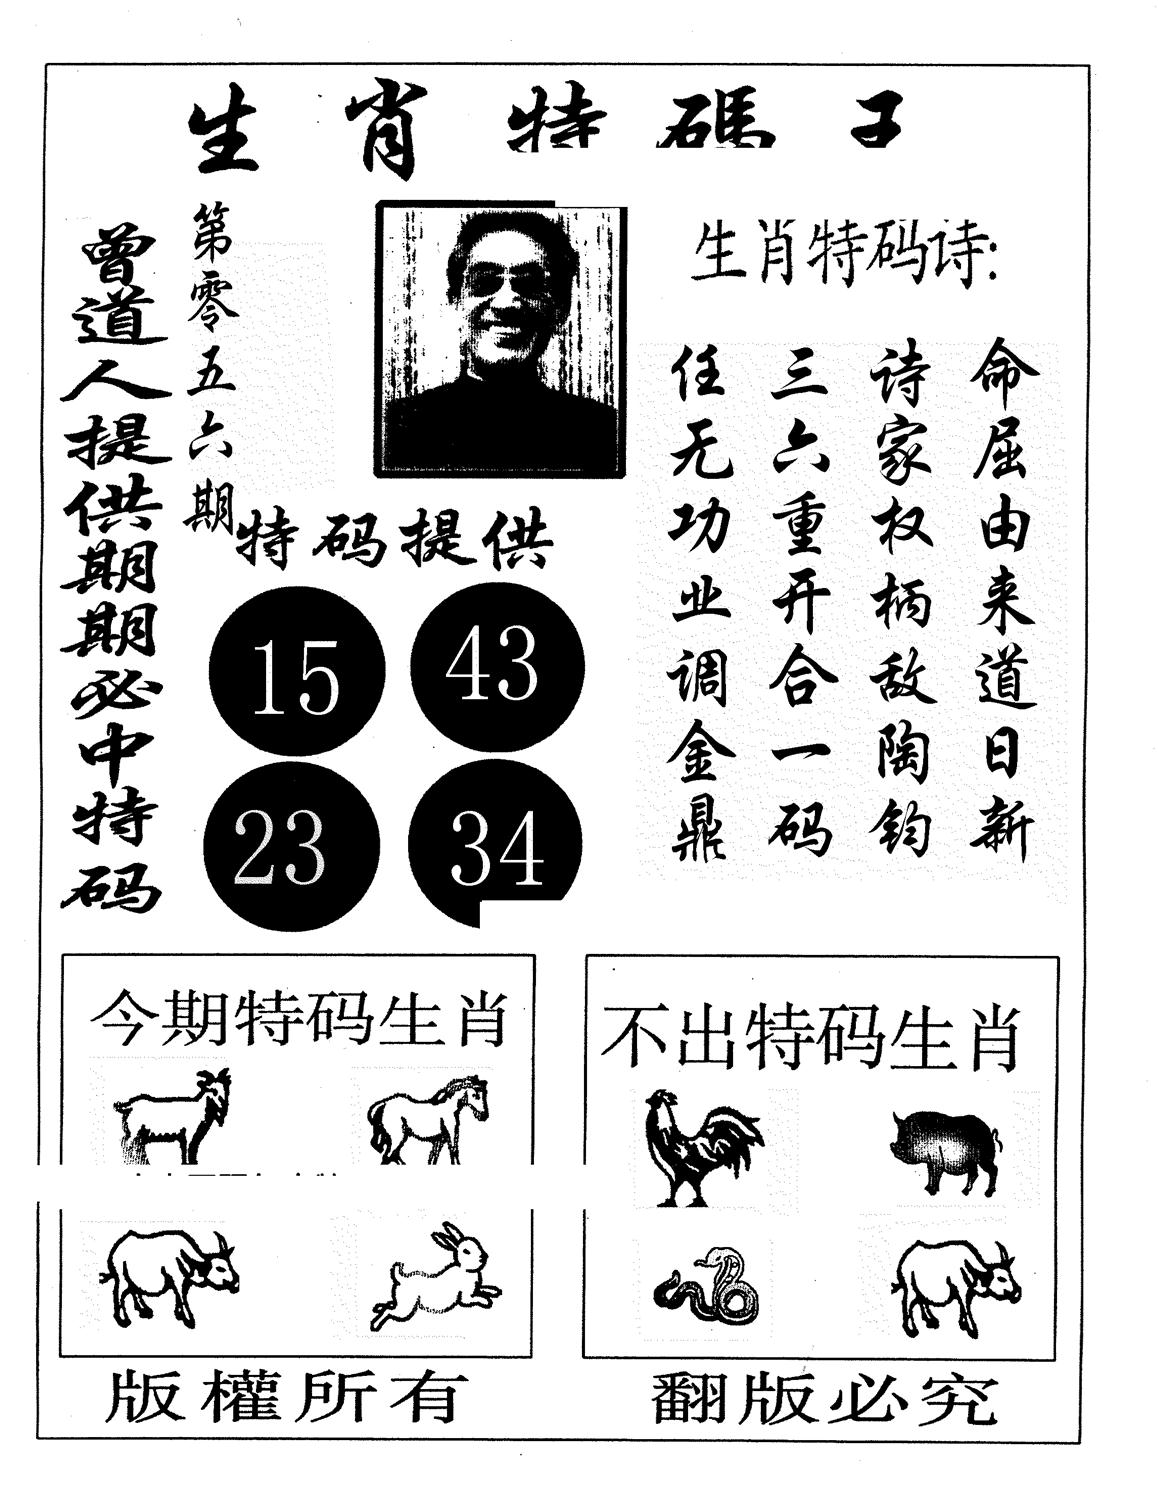 生肖特碼
曾道人提供期期必中特码
第零五六期
生肖特码诗:
命屈由来道日新
诗家权柄敌陶钧
三六重开合一码
任无功业调金鼎
特码提供
15 43
23 34
今期特码生肖
不出特码生肖
版權所有
翻版必究